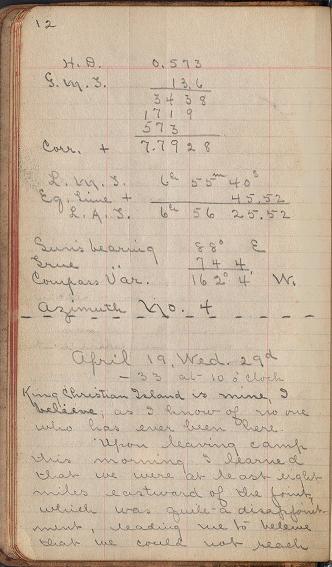 12
H.D. 0.573
G.M.T. 13.6
3438
1719
573
Corr. + 7.7928
L.M.T. 6h 55m 40s
Eq. time + 45.52
L.A.T. 6h 56 25.52
Sun's bearing 88° E
True " 74 4
Compass Var. 162° 4' W.
Azimuth No. 4
April 19, Wed. 29d
-33 at 10 o'clock
King Christian Island is mine, I
believe, as I know of no one
who has ever been here.
Upon leaving camp
this morning I learned
that we were at least eight
miles eastward of the point,
which was quite a disappoint-
ment, leading me to believe
that we could not reach